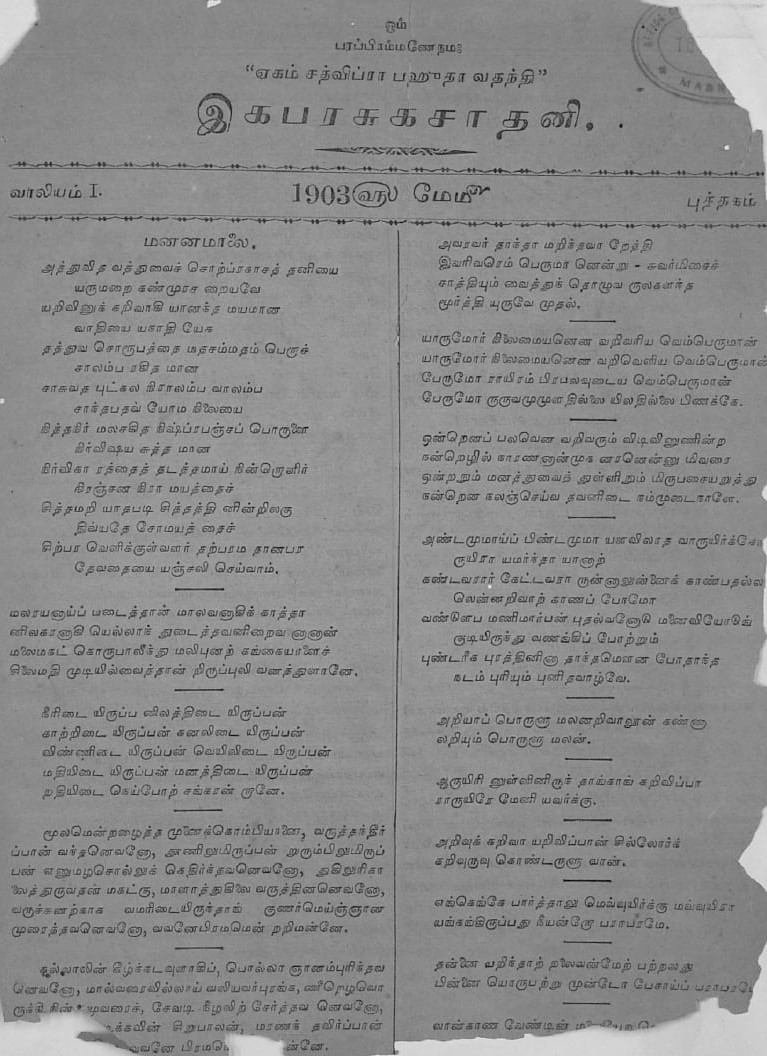 ஓம்
பரப்பிரம்மணேநம:
“ஏகம் சத்விப்ரா பஹுதா வதந்தி”
இகபரசுகசாதனி.
வாலியம் I.
1903௵ மே௴
புத்தகம்
மனனமாலை.
அத்துவித வத்துவைச் சொற்ப்ரகாசத் தனியை
யருமறை கண்முரச றையவே
யறிவினுக் கறிவாகி யானந்த மயமான
வாதியை யநாதி யேக
தத்துவ சொரூபத்தை மதசம்மதம் பெருச்
சாலம்ப ரகித மான
சாசுவத புட்கல நிராலம்ப வாலம்ப
சாந்தபதவ் யோம நிலையை
நித்தநிர் மலசகித நிஷ்ப்ரபஞ்சப் பொருளை
நிர்விஷய சுத்த மான
நிர்விகா ரத்தைத் தடத்தமாய் நின்றொளிர்
நிரஞ்சன நிரா மயத்தைச்
சித்தமறி யாதபடி சித்தத்தி னின்றிலகு
திவ்யதே சோமயத் தைச்
சிற்பர வெளிக்குள்வளர் தற்பரம தானபர
தேவதையை யஞ்சலி செய்வாம்.
மலரயனாய்ப் படைத்தான் மாலவனாகிக் காத்தா
னிலகரனாகி யெல்லாந் துடைத்தவனிறைவ னானான்
மலைமகட் கொருபாலீந்து மலிபுனற் கங்கையாளைச்
நிலைமதி முடியில்வைத்தான் றிருப்புலி வனத்துளானே.
நீரிடை யிருப்ப னிலத்திடை யிருப்பன்
காற்றிடை யிருப்பன் கனலிடை யிருப்பன்
விண்ணிடை யிருப்பன் வெயிலிடை யிருப்பன்
மதியிடை யிருப்பன் மனத்திடை யிருப்பன்
றதியிடை நெய்போற் சங்கரன் றானே.
மூலமென்றழைத்த முளைக்கொம்பியானை, வருத்தந்தீர்
ப்பான் வந்தனெவனோ, தூணினுமிருப்பன் றுரும்பினுமிருப்
பன் எனுமழசொல்லுக் கெதிர்ந்தவனெவனோ, அதிதூரிகா
லைத்துருவதன் மகட்கு, மாளாத்துகிலை வருத்தினனெவனோ,
வருச்சுனற்காக வமரிடையிருந்தாங் குணர்மெய்ஞ்ஞான
முரைத்தவனெவனோ, வவனேபிரமமென் றறிமன்னே.
கல்லாலின் கீழ்க்கடவுளாகிப், பொல்லா ஞானம்புரிந்தவ
னெவனோ, மால்வரைவில்லாய் வலியவர்புரங்க, ணீறெழவொ
மூவரைச், சேவடி நீழலிற் சேர்த்தவ னெவனோ,
சிறுபாலன், மரணந் தவிர்ப்பான்
அவரவர் தாந்தா மறிந்தவா றேத்தி
இவரிவரெம் பெருமா னென்று - சுவர்மிசைச்
சாத்தியும் வைத்துந் தொழுவ ருலகளந்த
மூர்த்தி யுருவே முதல்.
யாருமோர் நிலைமையனென வறிவரிய வெம்பெருமான்
யாருமோர் நிலைமையனென வறிவெளிய வெம்பெருமான்
பேருமோ ராயிரம் பிறபலவுடைய வெம்பெருமான்
பேருமோ ருருவமுமுளதில்லை யிலதில்லை பிணக்கே.
ஒன்றெனப் பலவென வறிவரும் வடிவினுணின்ற
நன்றெழில் நாரணனான்முக னரனென்னு மிவரை
ஒன்றநும் மனத்துவைத் துள்ளிநும் மிருபசையறுத்து
நன்றென நலஞ்செய்வ தவனிடை நம்முடைநாளே.
அண்டமுமாய்ப் பிண்டமுமா யளவிலாத வாருயிர்க்கோ
ருயிரா யமர்ந்தா யானாற்
கண்டவரார் கேட்டவரா ருன்னாலுன்னைக் காண்பதல்லா
லென்னறிவாற் காணப் போமோ
வண்டுளப மணிமார்பன் புதல்வனோடு மனைவியோடுங்
குடியிருந்து வணங்கிப் போற்றும்
புண்டரிக புரத்தினினா தாந்தமௌன போதாந்த
நடம் புரியும் புனிதவாழ்வே.
அறியாப் பொருளு மலனறிவாலூன் கண்ணா
லறியும் பொருளு மலன்.
ஆருயிரி னுள்ளினிருர் தாங்காங் கறிவிப்பா
ராருயிரே மேனி யவர்க்கு.
அறிவுக் கறிவா யறிவிப்பான் சில்லோர்க்
கறிவுருவு கொண்டருளு வான்.
எங்கெங்கே பார்த்தாலு மெவ்வுயிர்க்கு மவ்வுயிரா
யங்கங்கிருப்பது நீயன்றோ பராபரமே.
தன்னை யறிந்தாற் றலைவன்மேற் பற்றலது
பின்னை யொருபற்று முண்டோ பேசாய்ப் பராபரமே
வான்காண வேண்டின்